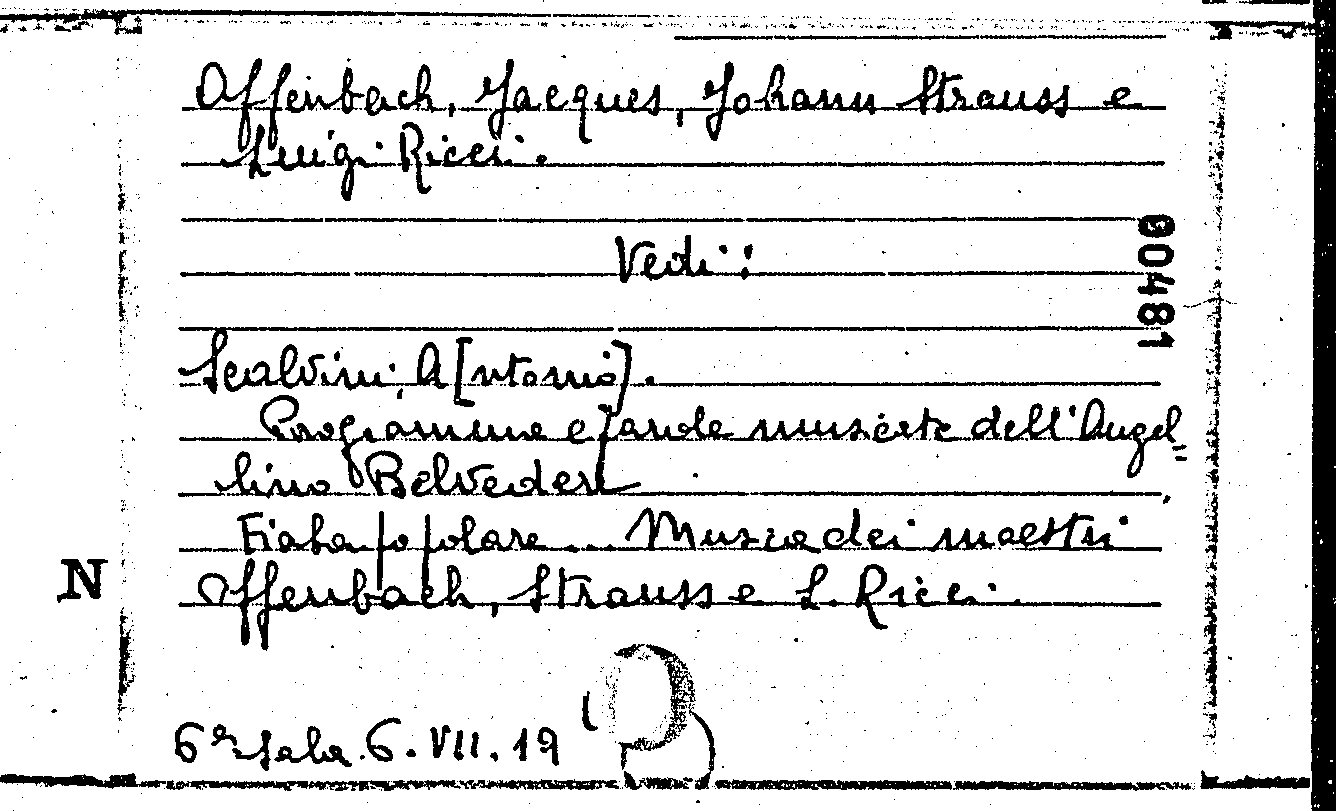 Offenbach, Jacques, Johann Strauss e
Luigi Ricci.
Vedi:
00481
Scalvini, A[ntonio].
Programma e parole musicate dell'Augel=
lino Belvedere
Fiaba popolare... Musica dei maestri
N
Offenbach, Strauss e L. Ricci.
6ª Sala. 6. VII. 19